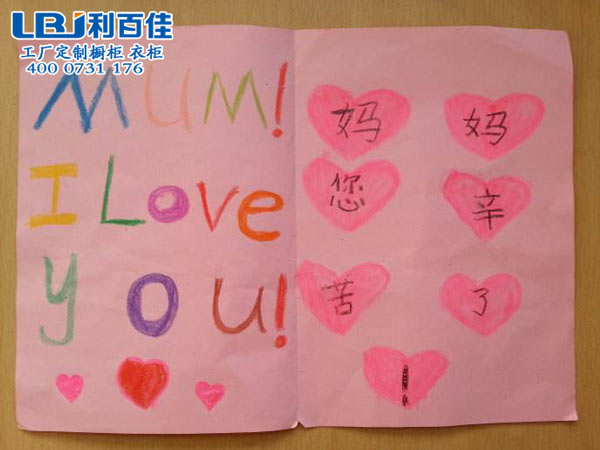 LBJ利百佳
工厂定制橱柜 衣柜
400 0731 176
MUM!
I Love
you!
妈 妈
您 辛
苦 了
!